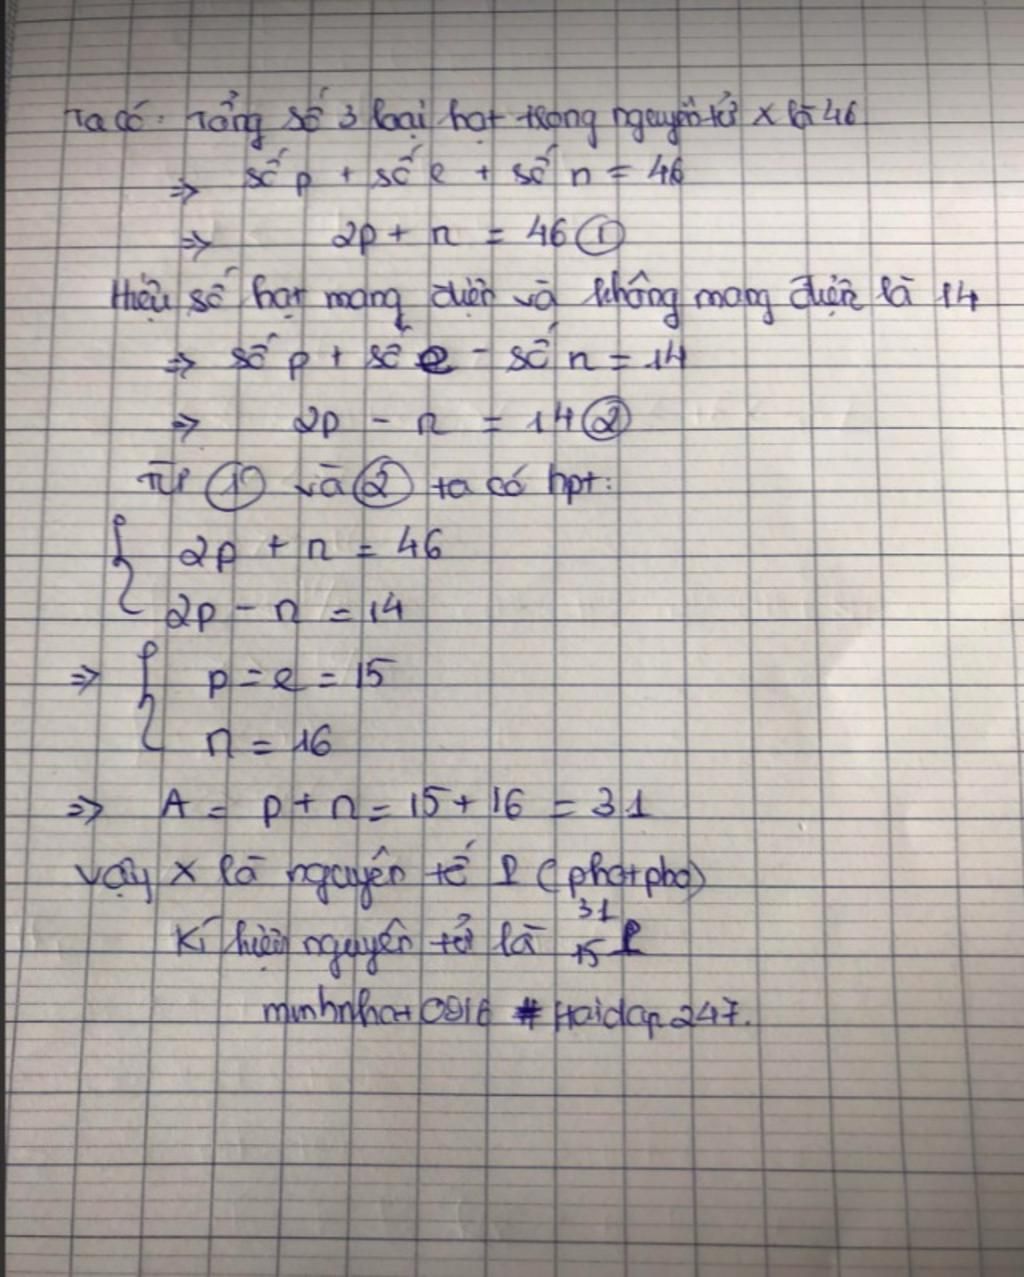 Ta có: Tổng số 3 loại hạt trong nguyên tử X là 46
⇒ số p + số e + số n = 46
⇒ 2p + n = 46 ①
Hiệu số hạt mang điện và không mang điện là 14
⇒ số p + số e - số n = 14
⇒ 2p - n = 14 ②
Từ ① và ② ta có hpt:
{ 2p + n = 46
2p - n = 14
⇒ { p = e = 15
n = 16
⇒ A = p + n = 15 + 16 = 31
Vậy X là nguyên tố P (photpho)
Kí hiệu nguyên tử là ³¹₁₅P
minhnhat0916 #Hoidap247.